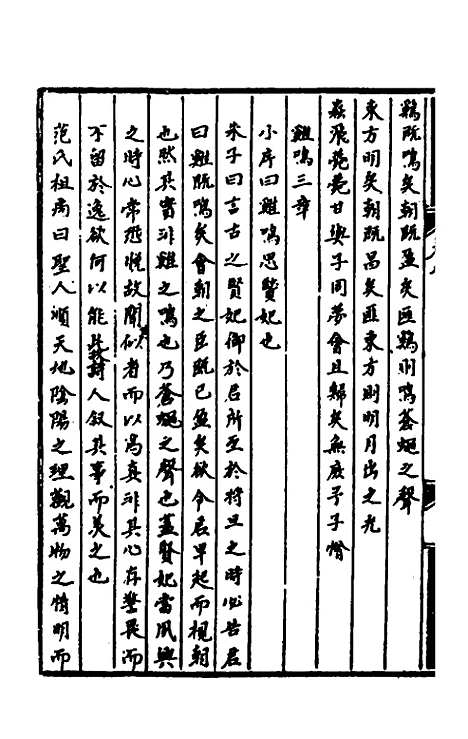 鷄既鳴矣朝既盈矣匪鷄則鳴蒼蠅之聲
東方明矣朝既昌矣匪東方則明月出之光
蟲飛薨薨甘與子同夢會且歸矣無庶予子憎
雞鳴三章
小序曰雞鳴思賢妃也
朱子曰言古之賢妃御於君所至於將旦之時必告君
曰雞既鳴矣會朝之臣既已盈矣欲令君早起而視朝
也然其實非雞之鳴也乃蒼蠅之聲也蓋賢妃當夙興
之時心常恐晚故聞似者而以爲真非其心存警畏而
不留於逸欲何以能此故詩人叙其事而美之也
范氏祖禹曰聖人順天地陰陽之理觀萬物之情明而